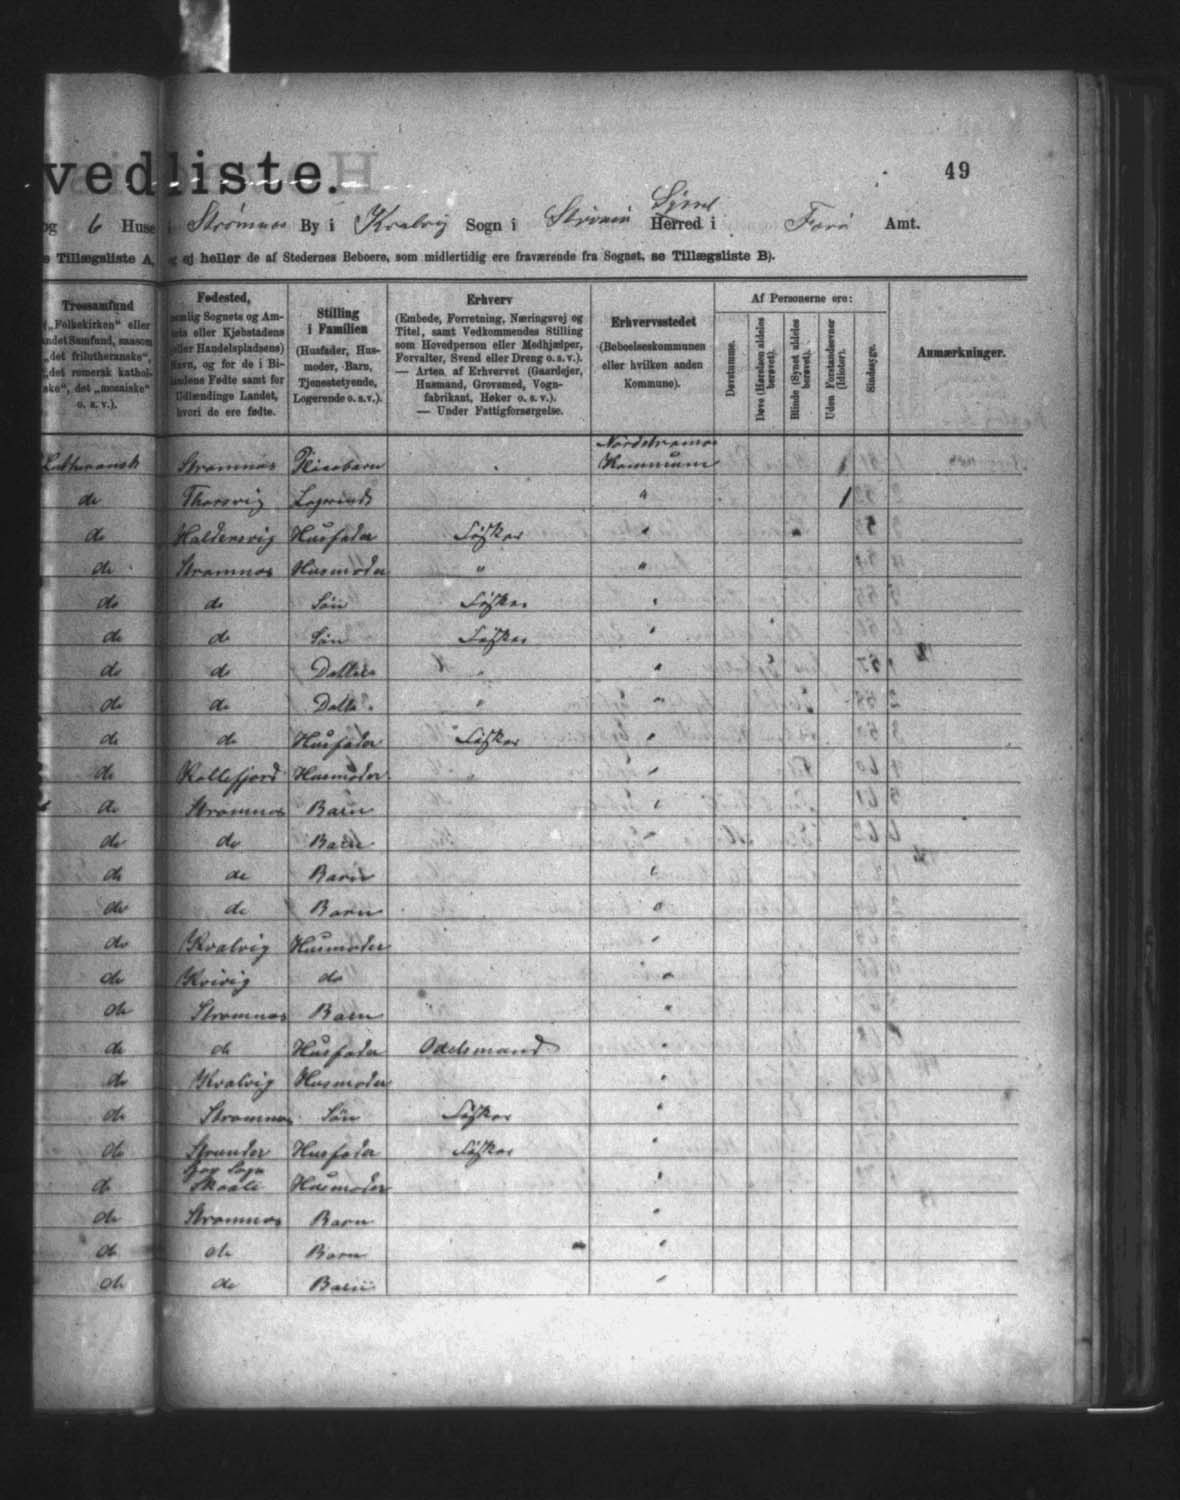 vedliste.
49
og 6 Huse i Strømnæs By i Kvalvig Sogn i Strømø Syssel Herred i Færø Amt.
Tillægsliste A, og ej heller de af Stedernes Beboere, som midlertidig ere fraværende fra Sognet, se Tillægsliste B).
Trossamfund
(„Folkekirken“ eller
andet Samfund, saasom
„det frilutheranske“,
„det romersk kathol-
ske“, det „mosaiske“
o. s. v.).
Fødested,
nemlig Sognets og Am-
tets eller Kjøbstadens
(eller Handelspladsens)
Navn, og for de i Bi-
landene Fødte samt for
Udlændinge Landet,
hvori de ere fødte.
Stilling
i Familien
(Husfader, Hus-
moder, Barn,
Tjenestetyende,
Logerende o. s. v.).
Erhverv
(Embede, Forretning, Næringsvej og
Titel, samt Vedkommendes Stilling
som Hovedperson eller Medhjælper,
Forvalter, Svend eller Dreng o. s. v.).
— Arten af Erhvervet (Gaardejer,
Husmand, Grovsmed, Vogn-
fabrikant, Høker o. s. v.).
— Under Fattigforsørgelse.
Erhvervsstedet
(Beboelseskommunen
eller hvilken anden
Kommune).
Af Personerne ere:
Døvstumme.
Døve (Hørelsen aldeles
berøvet).
Blinde (Synet aldeles
berøvet).
Uden Forstandsevner
(Idioter).
Sindssyge.
Anmærkninger.
Luthersansk Strømnæs Pleiebarn Nordstrømø Kommune
do Thorsvig Logerende " 1
do Haldersvig Husfader Fisker "
do Strømnæs Husmoder " "
do do Søn Fisker "
do do Søn Fisker "
do do Datter " "
do do Datter " "
do do Husfader Fisker "
do Kollefjord Husmoder " "
do Strømnæs Barn "
do do Barn "
do do Barn "
do do Barn "
do Kvalvig Husmoder "
do Kvivig do "
do Strømnæs Barn "
do do Husfader Odelsmand "
do Kvalvig Husmoder "
do Strømnæs Søn Fisker "
do Strænder Husfader Fisker "
do Skaale Husmoder "
do Strømnæs Barn "
do do Barn "
do do Barn "